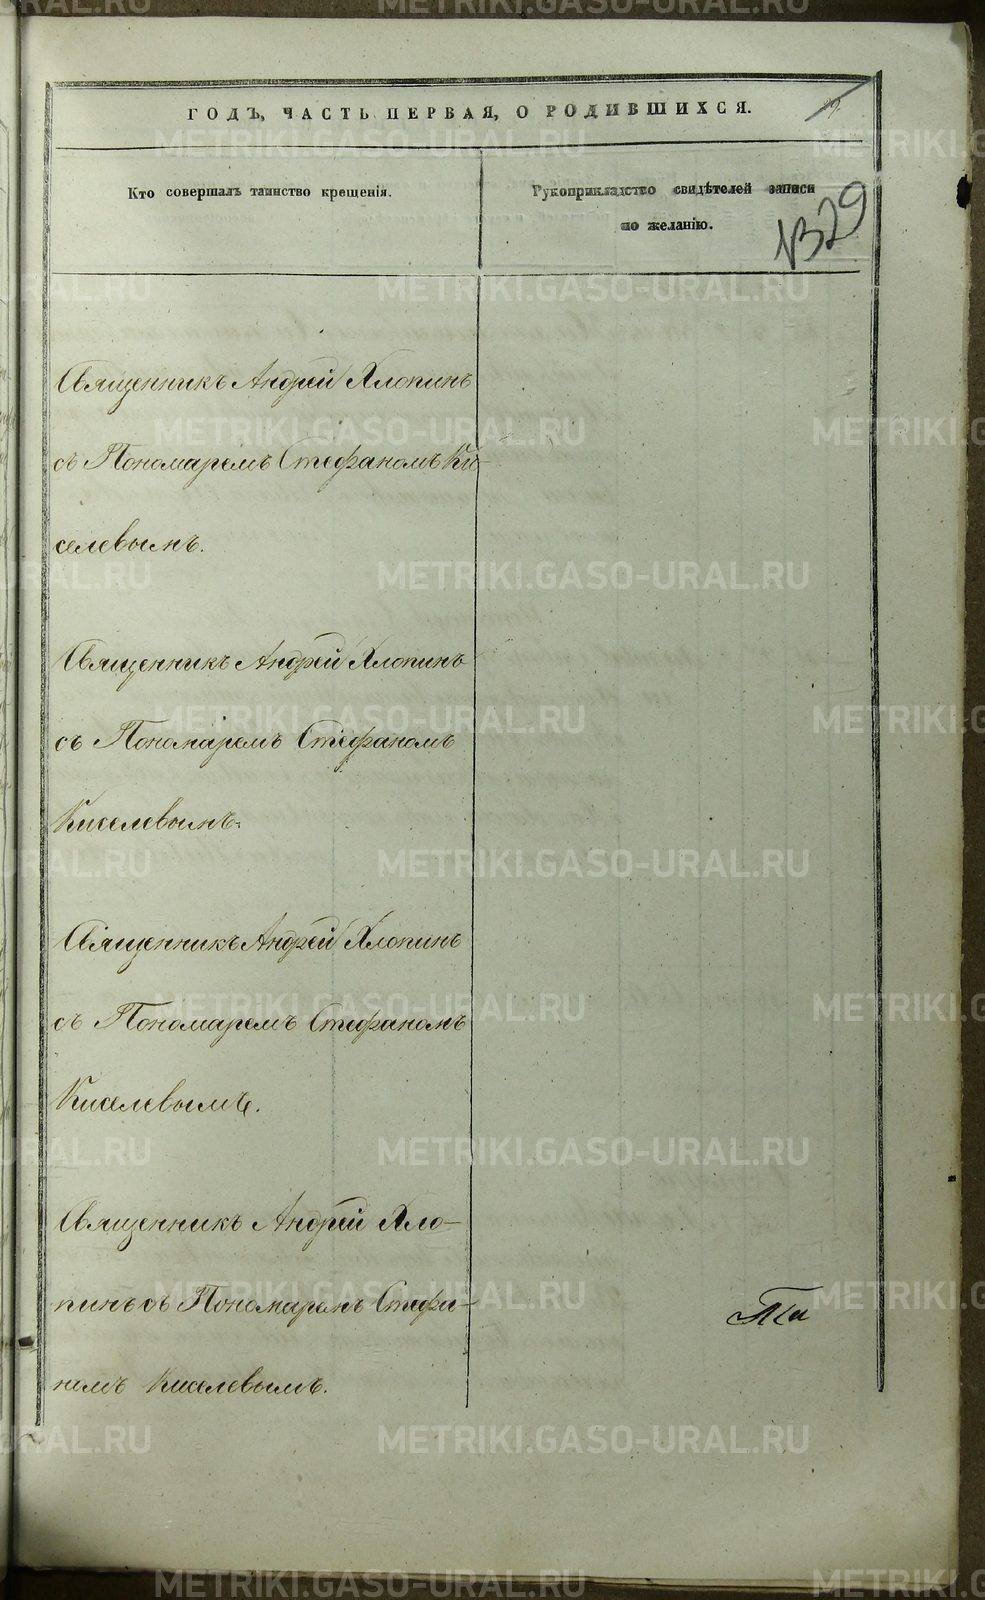 ГОДЪ, ЧАСТЬ ПЕРВАЯ, О РОДИВШИХСЯ.
Кто совершалъ таинство крещенія.
Рукоприкладство свидѣтелей записи
по желанію.
1329
Священникъ Андрей Хлопинъ
съ Пономаремъ Стефаномъ Ки-
селевымъ.
Священникъ Андрей Хлопинъ
съ Пономаремъ Стефаномъ
Киселевымъ.
Священникъ Андрей Хлопинъ
съ Пономаремъ Стефаномъ
Киселевымъ.
Священникъ Андрей Хло-
пинъ съ Пономаремъ Стефа-
номъ Киселевымъ.
METRIKI.GASO-URAL.RU